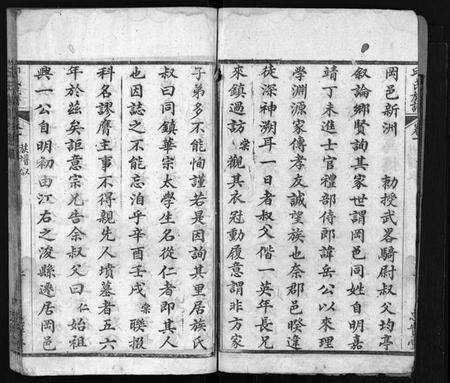 岡邑新洲　勅授武畧騎尉叔父均亭
叙論鄉賢詢其家世謂岡邑同姓自明嘉
靖丁未進士官禮部侍郎諱岳公以來理
學淵源家傳孝友誠望族也奈郡邑暌違
徒深神溯耳一日者叔父偕一英年長兄
來鎮過訪宗觀其衣冠動履意謂非方家
子弟多不能恂謹若是因詢其里居族氏
叔曰同鎮華宗太學生名從仁者即其人
也因誌之不能忘泊乎辛酉壬戌宗聯掇
科名謬膺主事不得親先人墳墓者五六
年於茲矣詎意宗兄告余叔父曰仁始祖
興一公自明初由江右之浚縣遷居岡邑